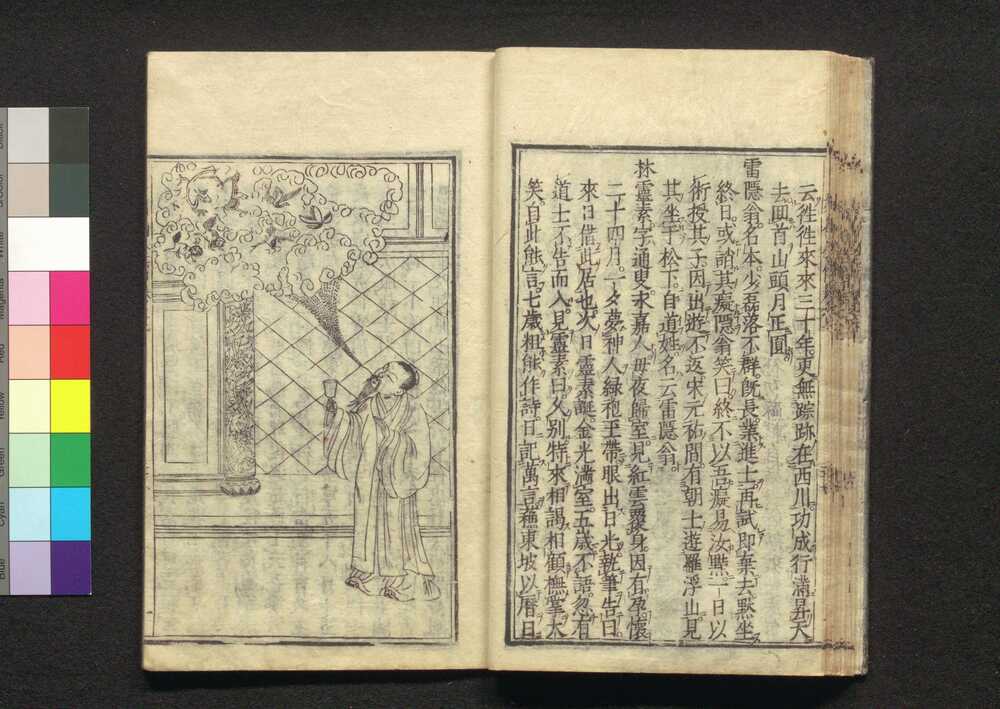 云徃徃來來三十年更無踪跡在西川功成行滿昇天
去囬首山頭月正圓
雷隱翁名本少磊落不群既長業進士再試即棄去黙坐
終日或誚其癡隱翁笑曰終不以吾癡易汝黠一日以
術授其子因出遊不返宋元祐間有朝士遊羅浮山見
其坐于松下自道姓名云雷隱翁
林靈素字通叟永嘉人母夜歸室見紅雲覆身因有孕懷
二十四月一夕夢神人綠袍玉帶眼出日光執筆告曰
來日借此居也次日靈素誕金光滿室五歲不語忽有
道士不告而入見靈素曰久別特來相謁相顧撫掌大
笑自此能言七歲粗能作詩日記萬言蘓東坡以曆日
Black
White
Magenta
Red
Yellow
Green
Cyan
Blue